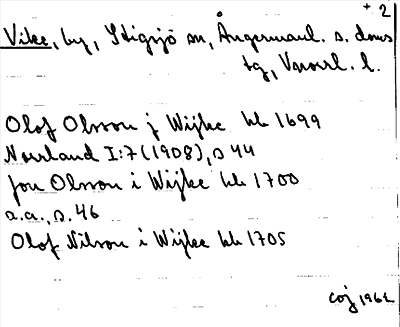 + 2
Vike, by, Stigsjö sn, Ångermanl. s. doms
tg, Vnorrl. l.
Olof Olsson j Wijke hb 1699
Norrland I:7 (1908), s 44
Jon Olsson i Wijke hb 1700
a.a., s. 46
Olof Nilson i Wijke hb 1705
1962